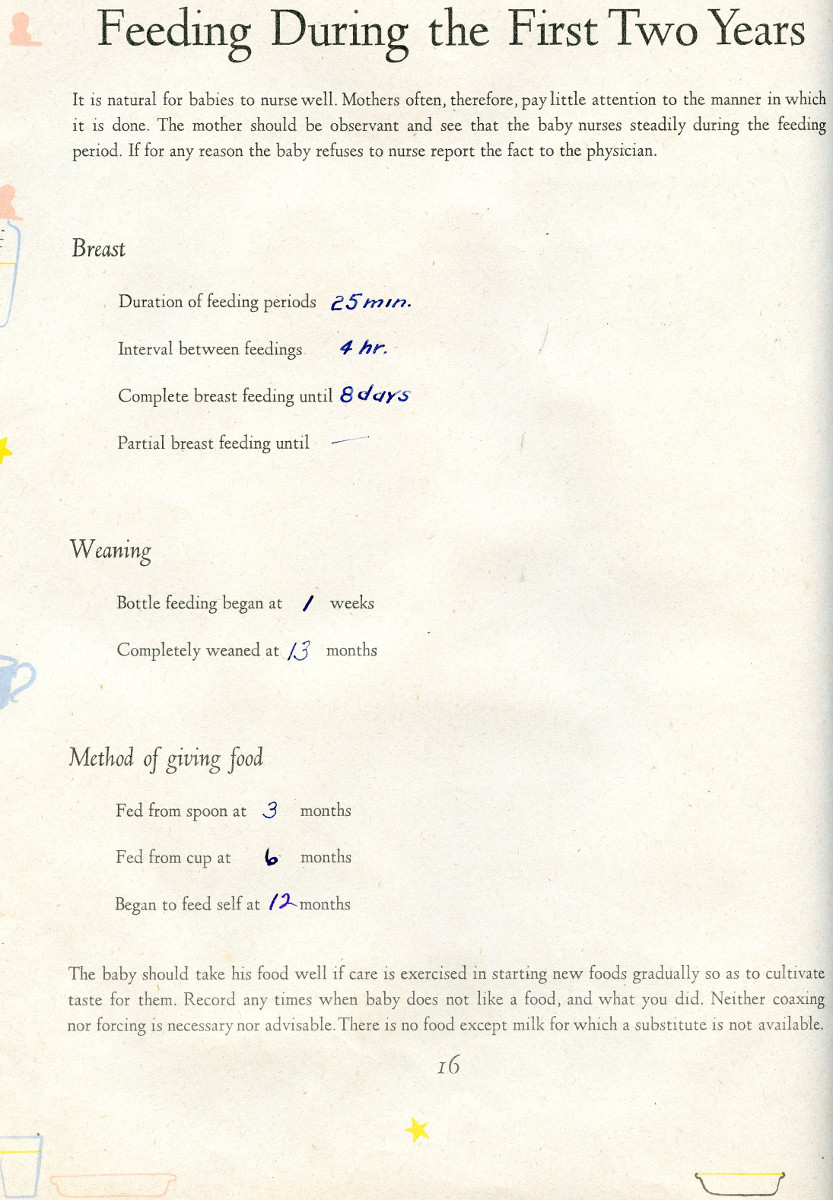 Feeding During the First Two Years
It is natural for babies to nurse well. Mothers often, therefore, pay little attention to the manner in which
it is done. The mother should be observant and see that the baby nurses steadily during the feeding
period. If for any reason the baby refuses to nurse report the fact to the physician.
Breast
Duration of feeding periods 25 min.
Interval between feedings 4 hr.
Complete breast feeding until 8 days
Partial breast feeding until —
Weaning
Bottle feeding began at 1 weeks
Completely weaned at 13 months
Method of giving food
Fed from spoon at 3 months
Fed from cup at 6 months
Began to feed self at 12 months
The baby should take his food well if care is exercised in starting new foods gradually so as to cultivate
taste for them. Record any times when baby does not like a food, and what you did. Neither coaxing
nor forcing is necessary nor advisable. There is no food except milk for which a substitute is not available.
16